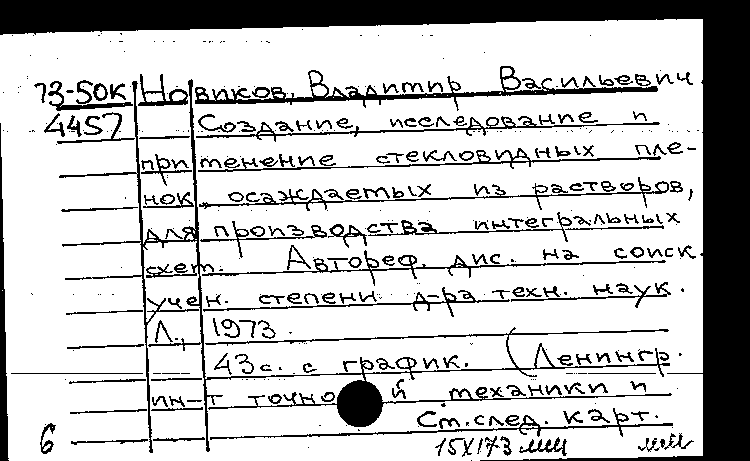 73-50К Новиков, Владимир Васильевич.
4457 Создание, исследование и
применение стекловидных пле-
нок, осаждаемых из растворов,
для производства интегральных
схем. Автореф. дис. на соиск.
учен. степени д-ра техн. наук.
Л., 1973.
43 с. с график. (Ленингр.
ин-т точной механики и
См. след. карт.
6 15X173